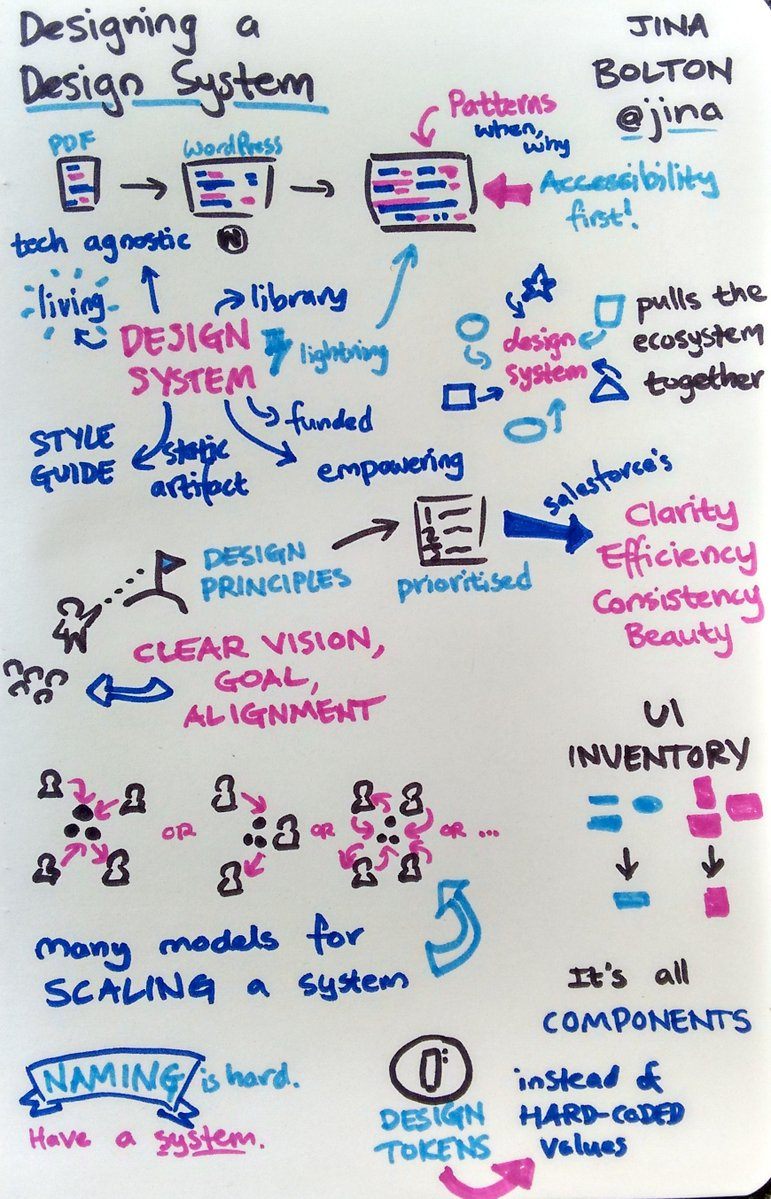 Designing a
Design System
JINA
BOLTON
@jina
PDF
WordPress
Patterns
when,
why
Accessibility
first!
tech agnostic
W
living
library
DESIGN
SYSTEM
lightning
design
system
pulls the
ecosystem
together
STYLE
GUIDE
static
artifact
funded
empowering
DESIGN
PRINCIPLES
1
2
3
prioritised
salesforce's
Clarity
Efficiency
Consistency
Beauty
CLEAR VISION,
GOAL,
ALIGNMENT
UI
INVENTORY
OR
OR
OR ...
many models for
SCALING a system
It's all
COMPONENTS
NAMING is hard.
Have a system.
DESIGN
TOKENS
instead of
HARD-CODED
values